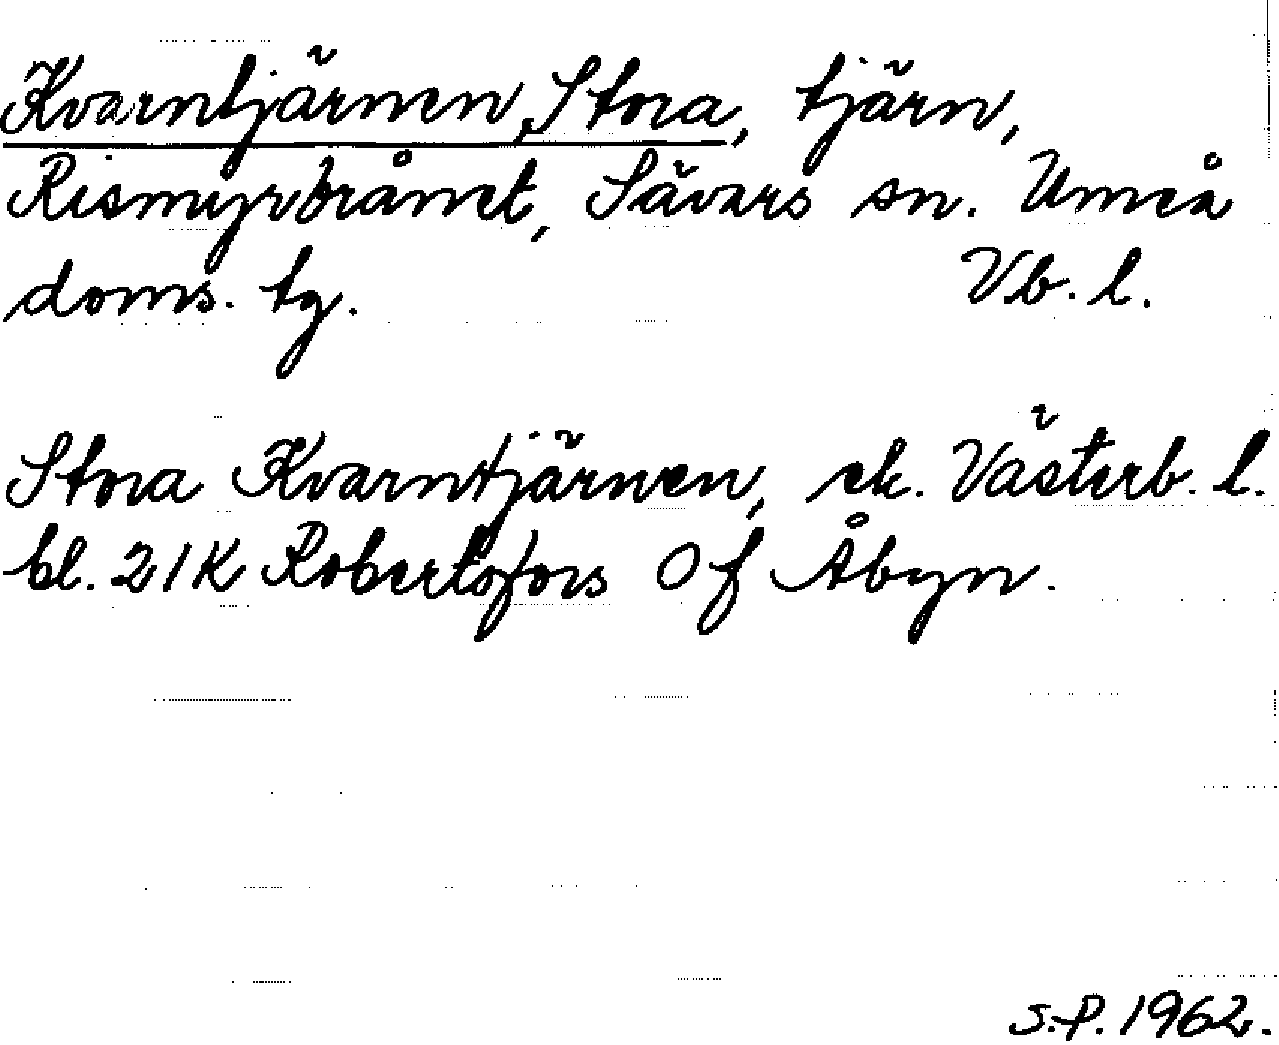 Kvarntjärnen, Stora, tjärn,
Rismyrbrånet, Sävars sn. Umeå
doms. tg. Vb. l.
Stora Kvarntjärnen, ek. Västerb. l.
bl. 21K Robertsfors 0f Åbyn.
S.P. 1962.